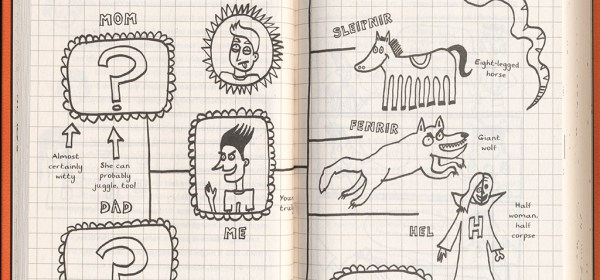 MOM
?
Almost
certainly
witty
She can
probably
juggle, too!
DAD
?
ME
SLEIPNIR
Eight-legged
horse
FENRIR
Giant
wolf
HEL
H
Half
woman,
half
corpse